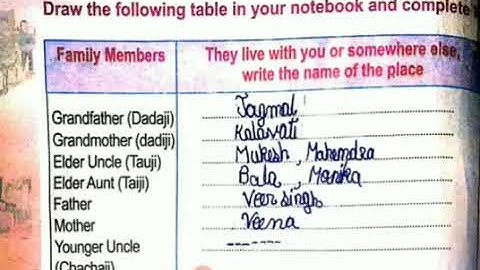 Draw the following table in your notebook and complete
Family Members They live with you or somewhere else,
write the name of the place
Grandfather (Dadaji) Jagmal
Grandmother (dadiji) Kalavati
Elder Uncle (Tauji) Mukesh, Mahendra
Elder Aunt (Taiji) Bala, Monika
Father Veer singh
Mother Veena
Younger Uncle -------
(Chachaji)